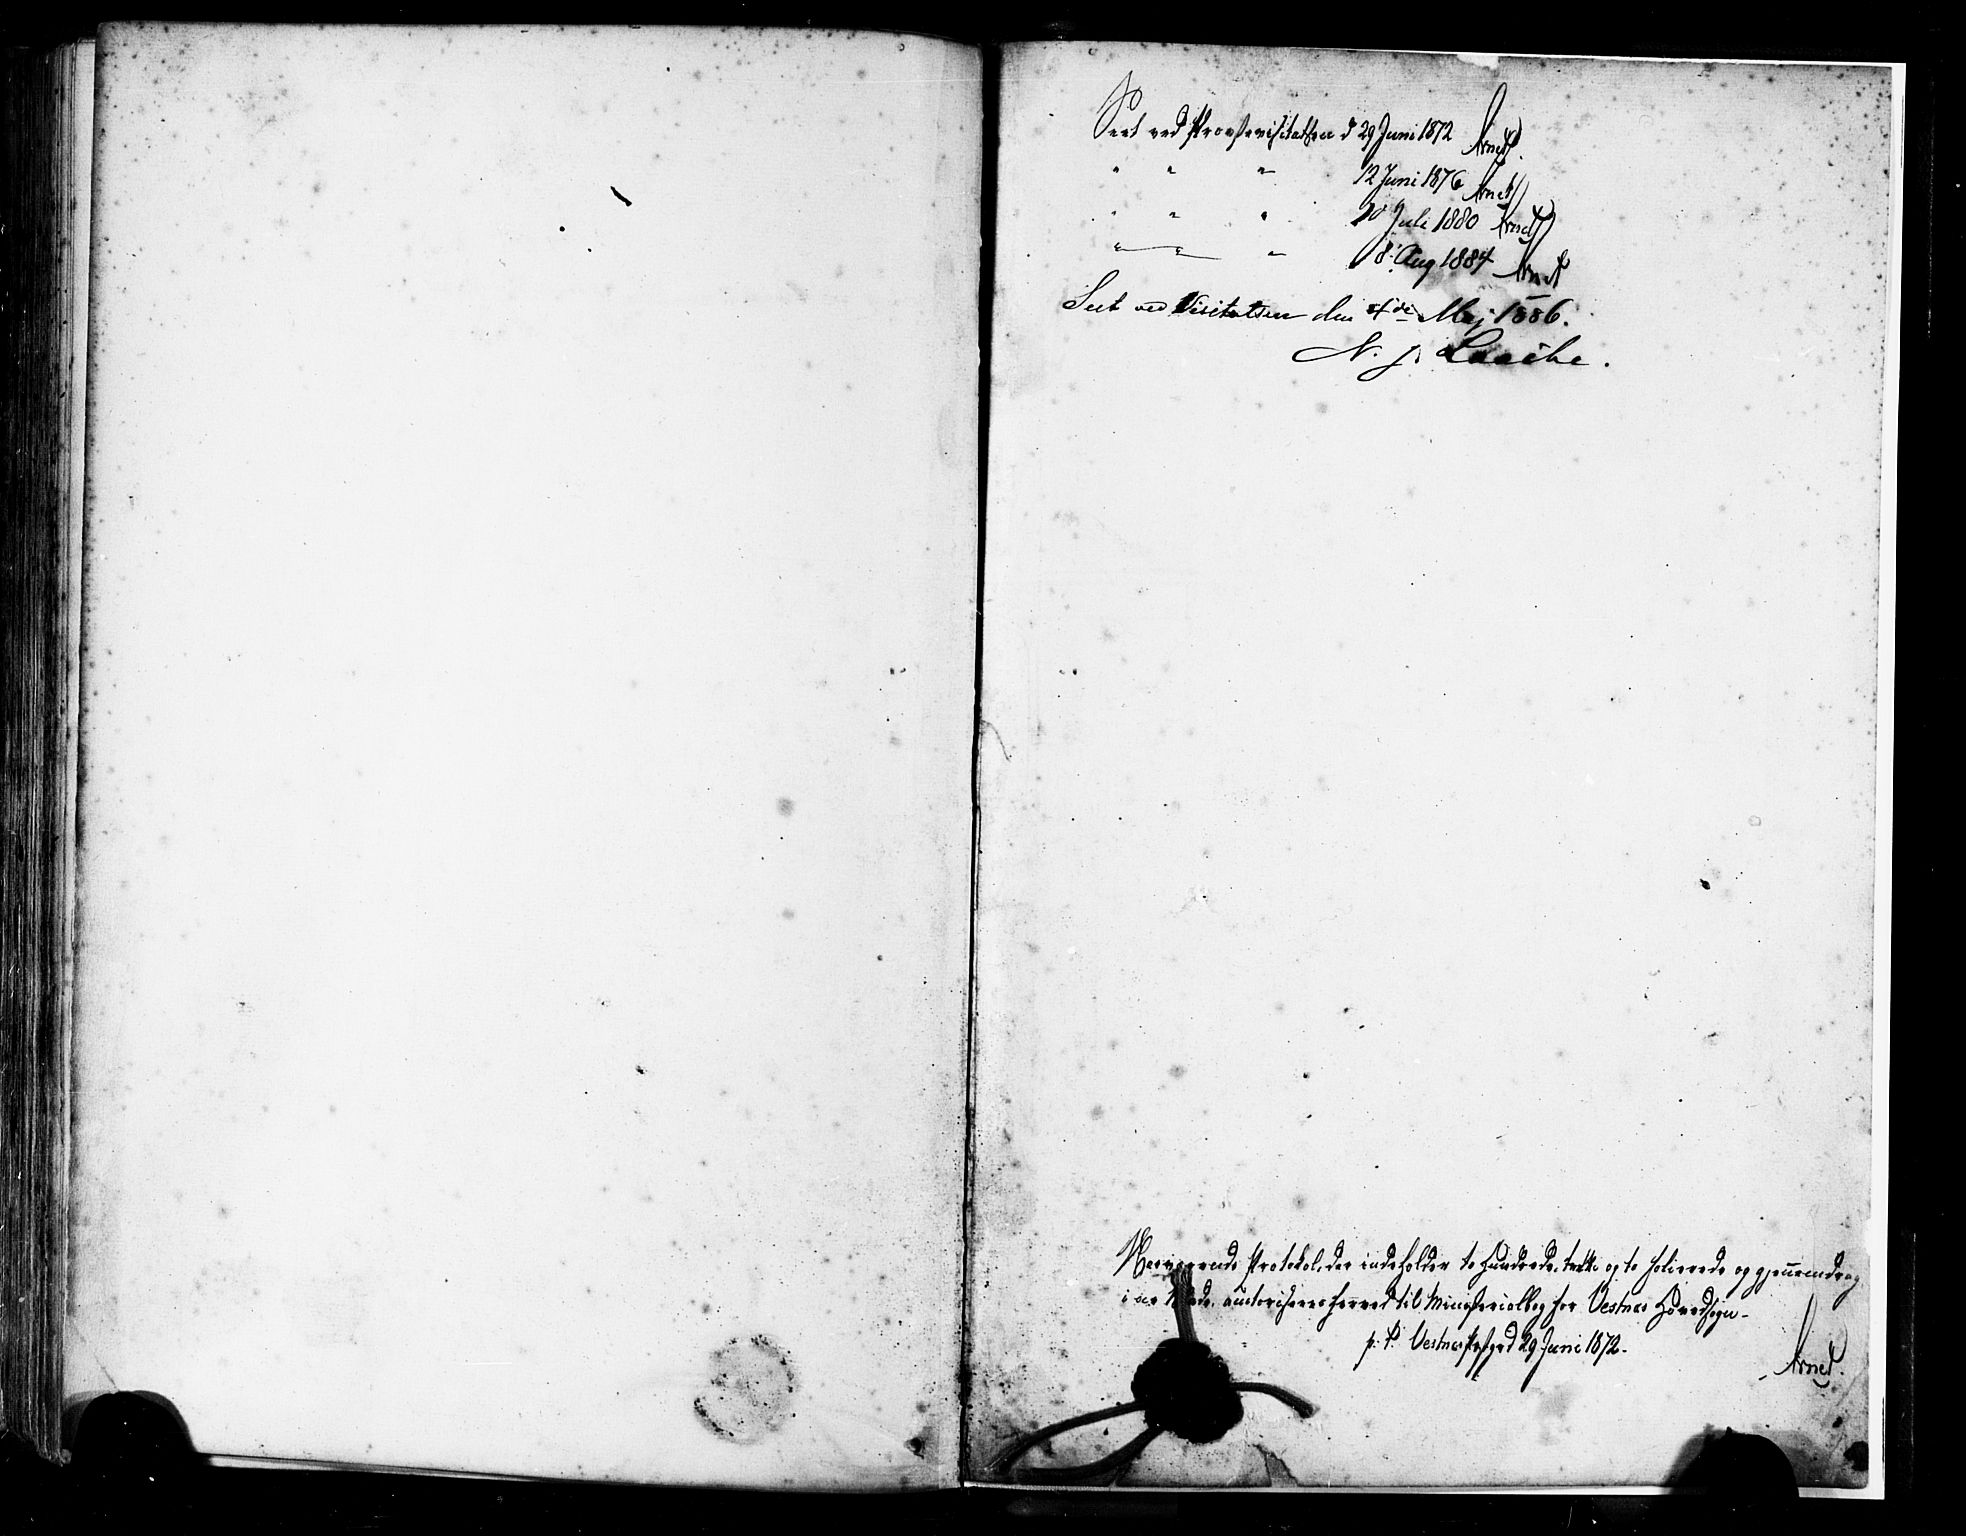 Seet ved Provstevisitatsen d 29 Juni 1872 Arnet.
" " " 12 Juni 1876 Arnet
" " " Juli 1880 Arnet
" " " 8 Aug 1884 Arnet
Seet ved Visitatsen den 4de Maj 1886.
N. J. Laache.
Nærværende Protokol, der indeholder to Hundrede, og to folierede og gjennemdrag
ne Blade, autoriseres herved til Ministerialbog for Vestnes Hovedsogn.
p. t. Vestnes Prstgrd 29 Juni 1872.
Arnet.